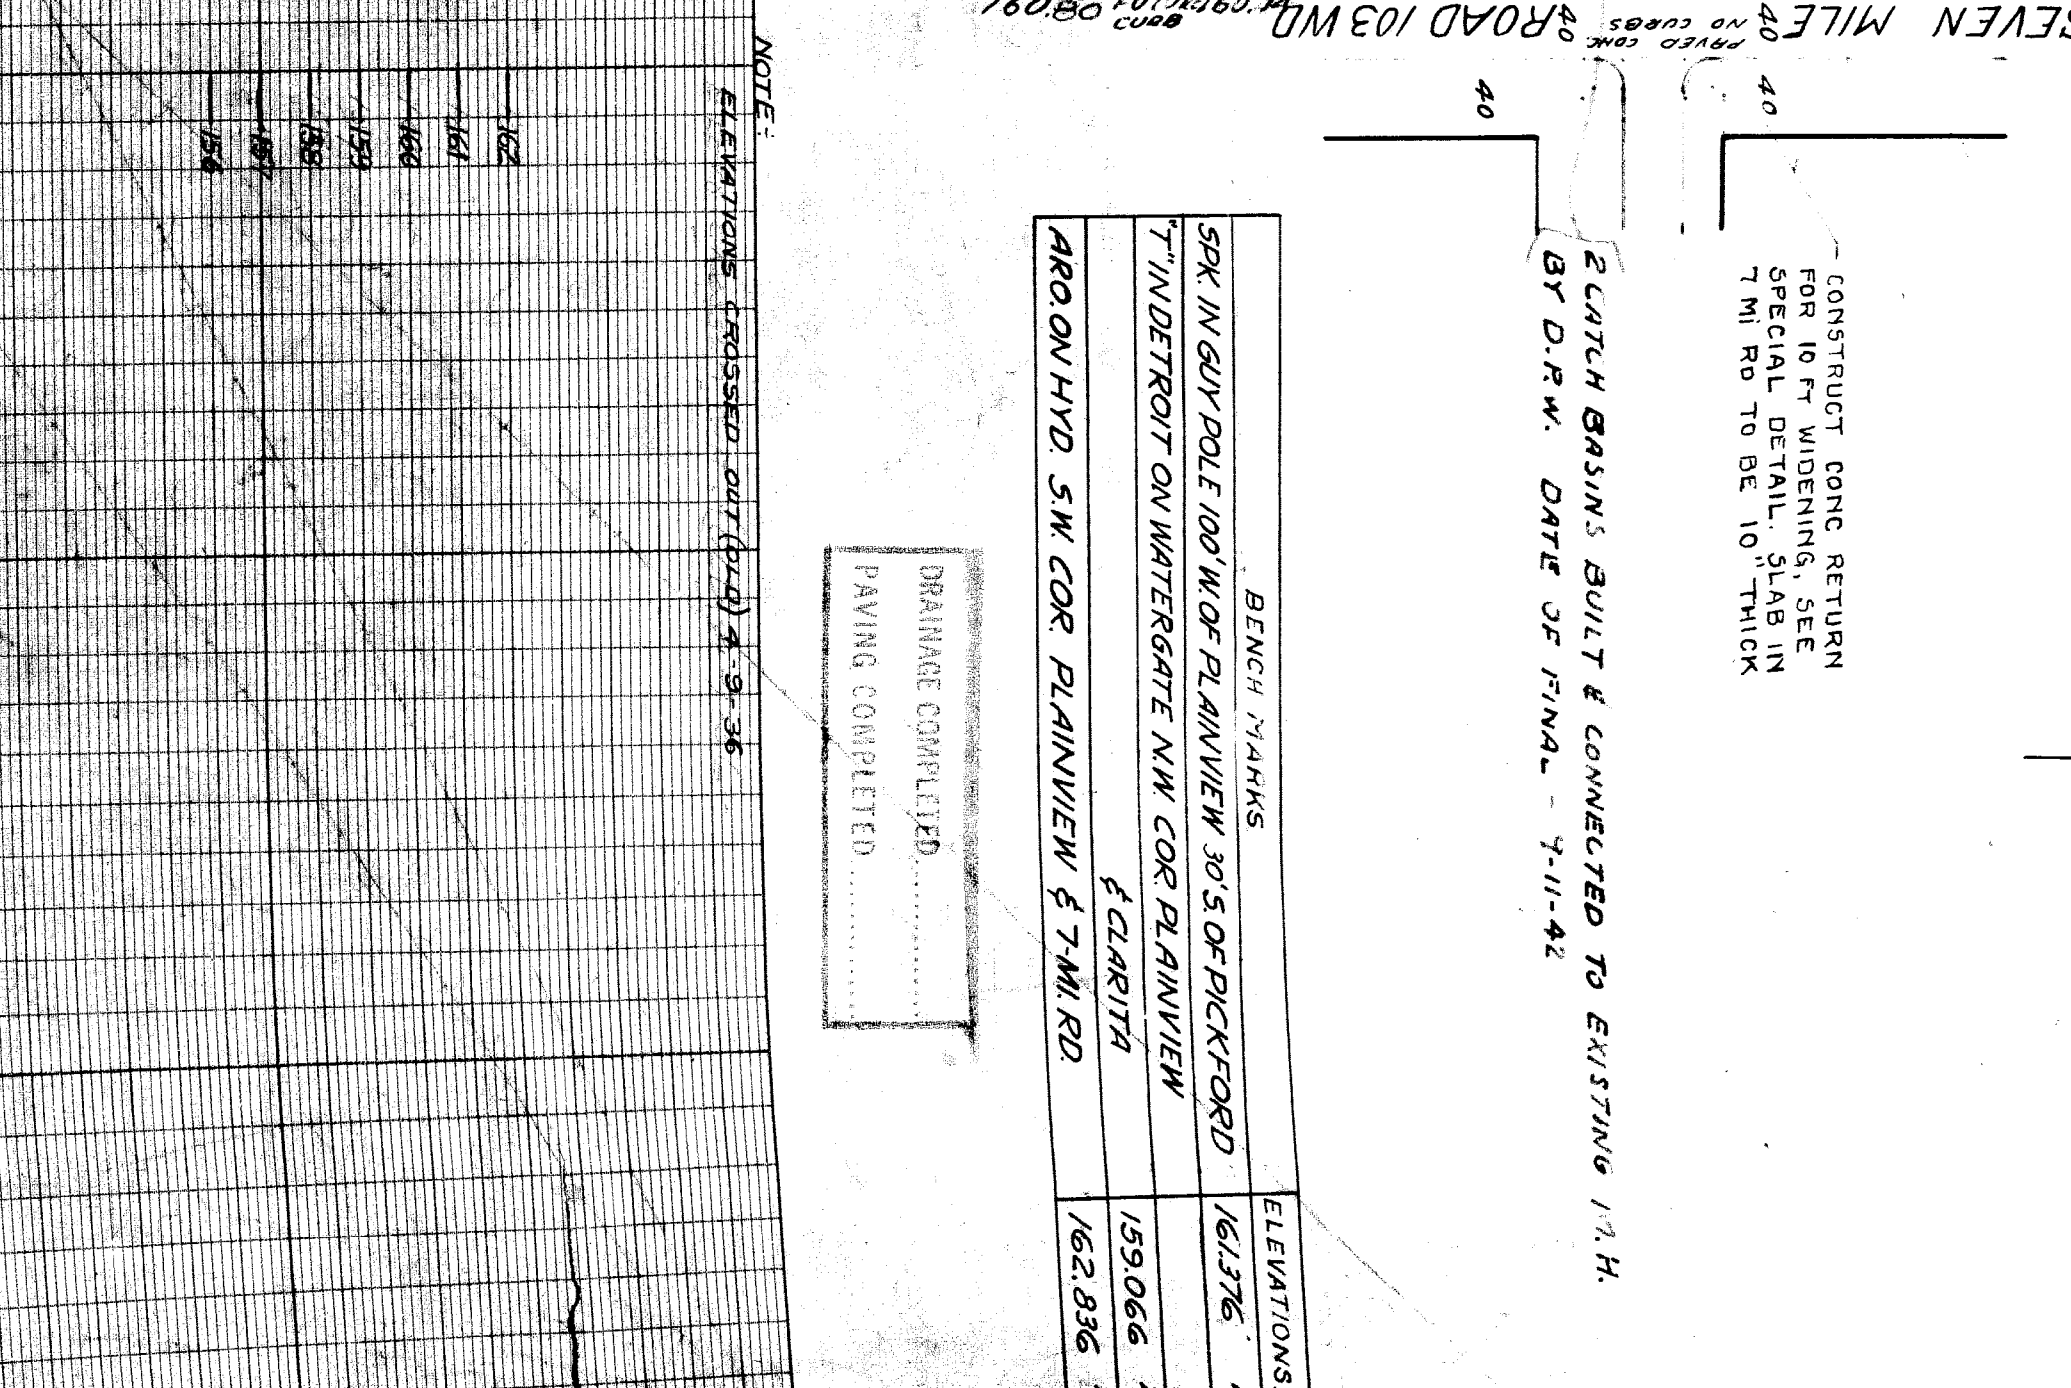 SEVEN MILE ROAD 103 WD
40
PAVED CONC
NO CURBS
40
40
40
CONSTRUCT CONC RETURN
FOR 10 FT WIDENING, SEE
SPECIAL DETAIL. SLAB IN
7 Mi RD TO BE 10" THICK
2 CATCH BASINS BUILT & CONNECTED TO EXISTING M.H.
BY D.P.W. DATE OF FINAL - 9-11-42
BENCH MARKS ELEVATIONS
SPK. IN GUY POLE 100' W. OF PLAINVIEW 30' S. OF PICKFORD 161.376
"T" IN DETROIT ON WATERGATE N.W. COR. PLAINVIEW
& CLARITA 159.066
ARO. ON HYD. S.W. COR. PLAINVIEW & 7-MI. RD. 162.836
DRAINAGE COMPLETED
PAVING COMPLETED
NOTE:
ELEVATIONS CROSSED OUT (OLD) 4-9-36
162
161
160
159
158
157
156